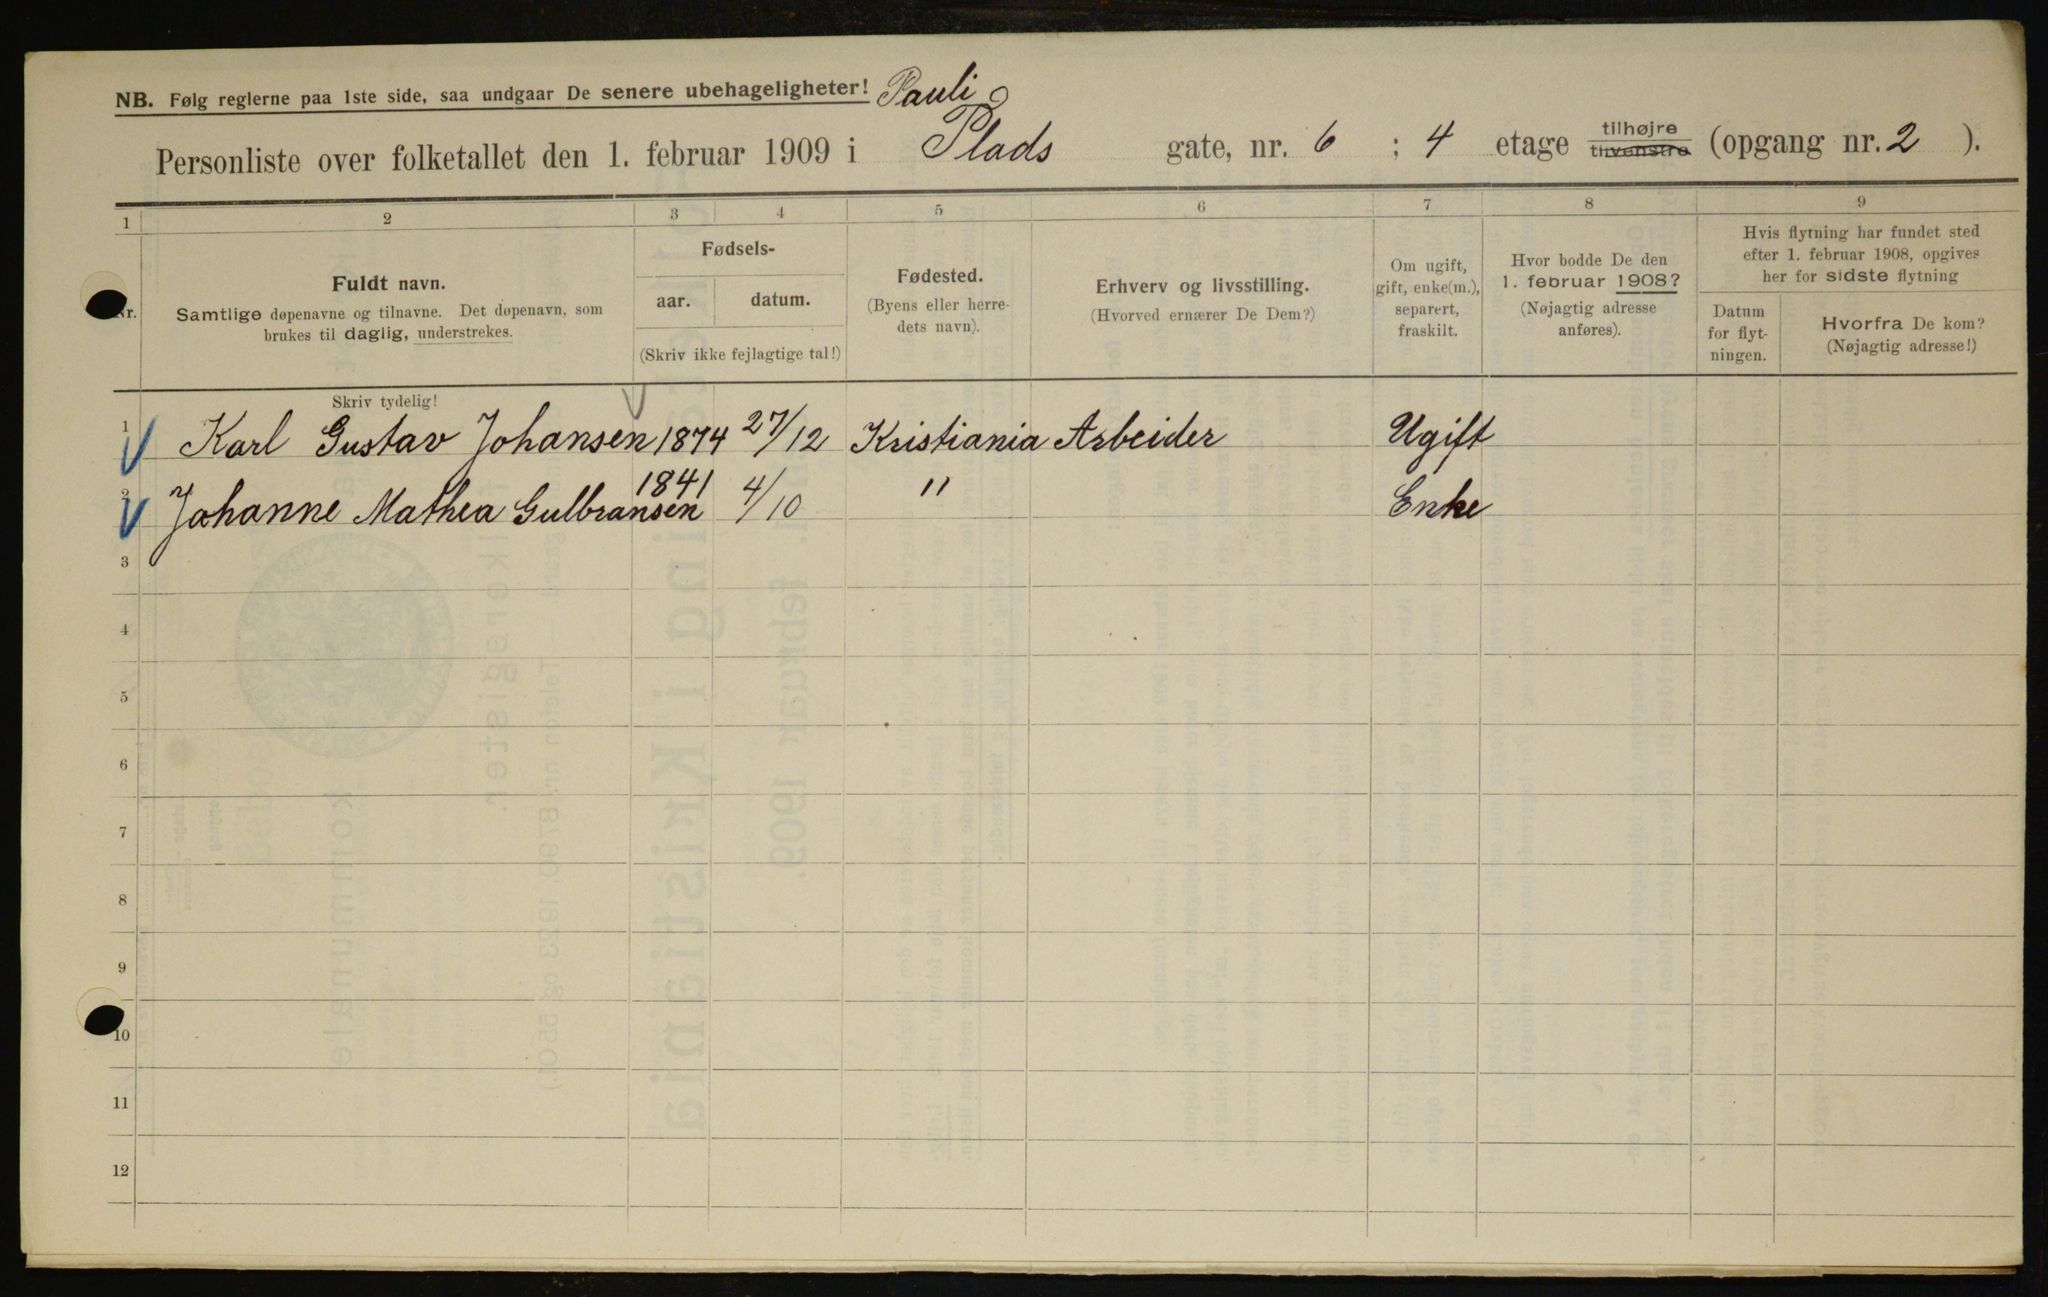 NB. Følg reglerne paa 1ste side, saa undgaar De senere ubehageligheter! Pauli
Personliste over folketallet den 1. februar 1909 i Plads gate, nr. 6 ; 4 etage tilhøjre tilvenstre (opgang nr. 2 ).
1 2 3 4 5 6 7 8 9
Nr.
Fuldt navn.
Samtlige døpenavne og tilnavne. Det døpenavn, som
brukes til daglig, understrekes.
Fødsels-
aar. datum.
(Skriv ikke fejlagtige tal!)
Fødested.
(Byens eller herre-
dets navn).
Erhverv og livsstilling.
(Hvorved ernærer De Dem?)
Om ugift,
gift, enke(m.),
separert,
fraskilt.
Hvor bodde De den
1. februar 1908?
(Nøjagtig adresse
anføres).
Hvis flytning har fundet sted
efter 1. februar 1908, opgives
her for sidste flytning
Datum
for flyt-
ningen.
Hvorfra De kom?
(Nøjagtig adresse!)
Skriv tydelig!
1 Karl Gustav Johansen 1874 27/12 Kristiania Arbeider Ugift
2 Johanne Mathea Gulbransen 1841 4/10 " Enke
3
4
5
6
7
8
9
10
11
12